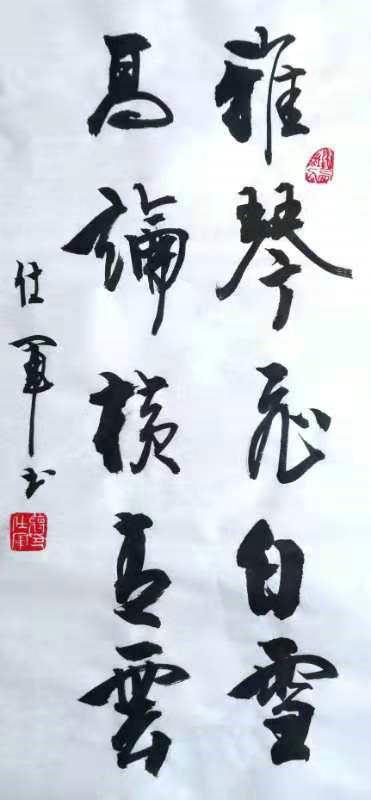 雅琴飛白雪
高論橫青雲
仕軍书